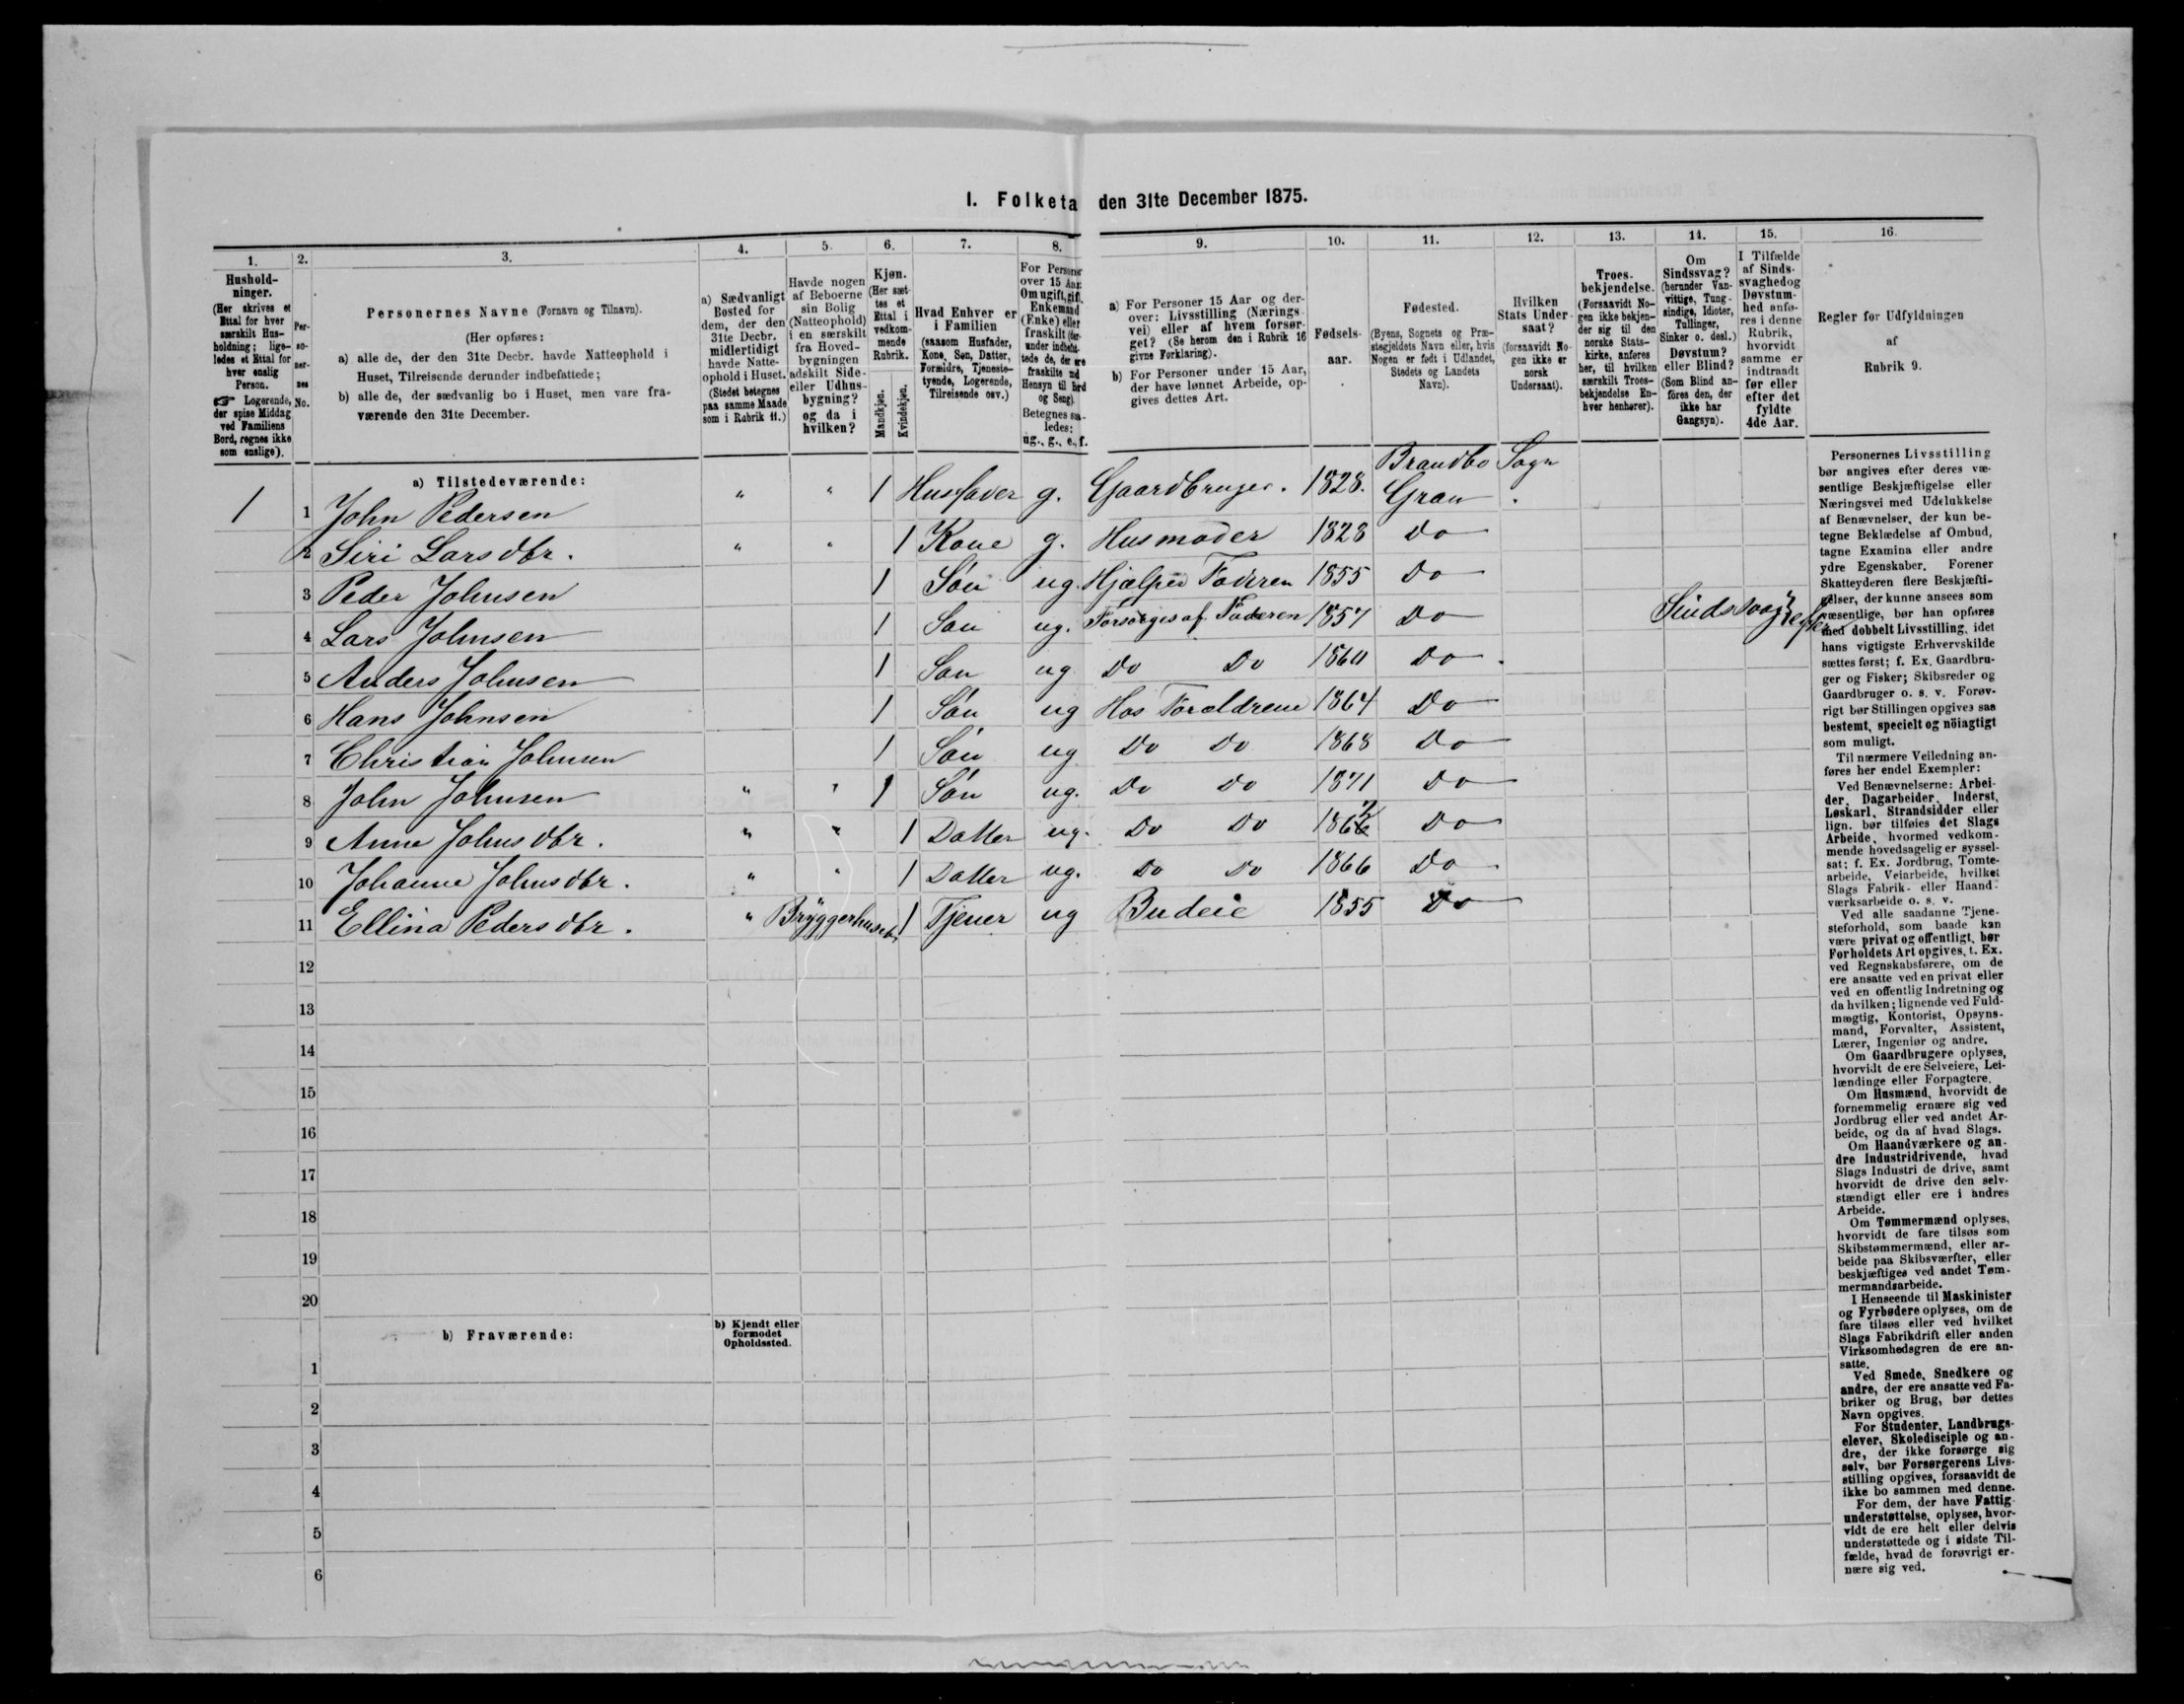 I. Folketa den 31te December 1875.
1. 2. 3. 4. 5. 6. 7. 8. 9. 10. 11. 12. 13. 14. 15. 16.
Hushold-
ninger.
(Her skrives et
Ettal for hver
særskilt Hus-
holdning; lige-
ledes et Ettal for
hver enslig
Person.
☞ Logerende,
der spise Middag
ved Familiens
Bord, regnes ikke
som enslige).
Per-
so-
ner-
nes
No.
Personernes Navne (Fornavn og Tilnavn).
(Her opføres:
a) alle de, der den 31te Decbr. havde Natteophold i
Huset, Tilreisende derunder indbefattede;
b) alle de, der sædvanlig bo i Huset, men vare fra-
værende den 31te December.
a) Sædvanligt
Bosted for
dem, der den
31te Decbr.
midlertidigt
havde Natte-
ophold i Huset.
(Stedet betegnes
paa samme Maade
som i Rubrik 11.)
Havde nogen
af Beboerne
sin Bolig
(Natteophold)
i en særskilt
fra Hoved-
bygningen
adskilt Side-
eller Udhus-
bygning?
og da i
hvilken?
Kjøn.
(Her sæt-
tes et
Ettal i
vedkom-
mende
Rubrik.
Mandkjøn.
Kvindekjøn.
Hvad Enhver er
i Familien
(saasom Husfader,
Kone, Søn, Datter,
Forældre, Tjeneste-
tyende, Logerende,
Tilreisende osv.)
For Personer
over 15 Aar:
Om ugift, gift,
Enkemand
(Enke) eller
fraskilt (der-
under indbefat-
tede de, der ere
fraskilte med
Hensyn til Bord
og Seng).
Betegnes saa-
ledes:
ug., g., e., f.
a) For Personer 15 Aar og der-
over: Livsstilling (Nærings-
vei) eller af hvem forsør-
get? (Se herom den i Rubrik 16
givne Forklaring).
b) For Personer under 15 Aar,
der have lønnet Arbeide, op-
gives dettes Art.
Fødsels-
aar.
Fødested.
(Byens, Sognets og Præ-
stegjeldets Navn eller, hvis
Nogen er født i Udlandet,
Stedets og Landets
Navn).
Hvilken
Stats Under-
saat?
(forsaavidt No-
gen ikke er
norsk
Undersaat).
Troes-
bekjendelse.
(Forsaavidt No-
gen ikke bekjen-
der sig til den
norske Stats-
kirke, anføres
her, til hvilken
særskilt Troes-
bekjendelse En-
hver henhører).
Om
Sindssvag?
(herunder Van-
vittige, Tung-
sindige, Idioter,
Tullinger,
Sinker o. desl.)
Døvstum?
eller Blind?
(Som Blind an-
føres den, der
ikke har
Gangsyn).
I Tilfælde
af Sinds-
svaghed og
Døvstum-
hed anfø-
res i denne
Rubrik,
hvorvidt
samme er
indtraadt
før eller
efter det
fyldte
4de Aar.
Regler for Udfyldningen
af
Rubrik 9.
a) Tilstedeværende:
Brandbo Sogn
1 1 John Pedersen " " 1 Husfader g. Gaardbruger. 1828. Gran.
2 Siri Larsdtr. " " 1 Kone g. Husmoder 1828 Do
3 Peder Johnsen 1 Søn ug Hjælper Faderen 1855 Do
4 Lars Johnsen 1 Søn ug. Forsørges af Faderen 1857 Do Sindssvag efter
5 Anders Johnsen 1 Søn ug Do Do 1860 Do
6 Hans Johnsen 1 Søn ug Hos Forældrene 1864 Do
7 Christian Johnsen 1 Søn ug Do Do 1868 Do
8 John Johnsen " " 1 Søn ug. Do Do 1871 Do
9 Anne Johnsdtr. " " 1 Datter ug. Do Do 1862 Do
10 Johanne Johnsdtr. " " 1 Datter ug. Do Do 1866 Do
11 Ellina Pedersdtr. " Bryggerhuset 1 Tjener ug Budeie 1855 Do
12
13
14
15
16
17
18
19
20
b) Fraværende:
b) Kjendt eller
formodet
Opholdssted.
1
2
3
4
5
6
Personernes Livsstilling
bør angives efter deres væ-
sentlige Beskjæftigelse eller
Næringsvei med Udelukkelse
af Benævnelser, der kun be-
tegne Beklædelse af Ombud,
tagne Examina eller andre
ydre Egenskaber. Forener
Skatteyderen flere Beskjæfti-
gelser, der kunne ansees som
væsentlige, bør han opføres
med dobbelt Livsstilling, idet
hans vigtigste Erhvervskilde
sættes først; f. Ex. Gaardbru-
ger og Fisker; Skibsreder og
Gaardbruger o. s. v. Forøv-
rigt bør Stillingen opgives saa
bestemt, specielt og nöiagtigt
som muligt.
Til nærmere Veiledning an-
føres her endel Exempler:
Ved Benævnelserne: Arbei-
der, Dagarbeider, Inderst,
Løskarl, Strandsidder eller
lign. bør tilføies det Slags
Arbeide, hvormed vedkom-
mende hovedsagelig er syssel-
sat; f. Ex. Jordbrug, Tomte-
arbeide, Veiarbeide, hvilket
Slags Fabrik- eller Haand-
værksarbeide o. s. v.
Ved alle saadanne Tjene-
steforhold, som baade kan
være privat og offentligt, bør
Forholdets Art opgives, t. Ex.
ved Regnskabsførere, om de
ere ansatte ved en privat eller
ved en offentlig Indretning og
da hvilken; lignende ved Fuld-
mægtig, Kontorist, Opsyns-
mand, Forvalter, Assistent,
Lærer, Ingeniør og andre.
Om Gaardbrugere oplyses,
hvorvidt de ere Selveiere, Lei-
lændinge eller Forpagtere.
Om Husmænd, hvorvidt de
fornemmelig ernære sig ved
Jordbrug eller ved andet Ar-
beide, og da af hvad Slags.
Om Haandværkere og an-
dre Industridrivende, hvad
Slags Industri de drive, samt
hvorvidt de drive den selv-
stændigt eller ere i andres
Arbeide.
Om Tømmermænd oplyses,
hvorvidt de fare tilsøs som
Skibstømmermænd, eller ar-
beide paa Skibsværfter, eller
beskjæftiges ved andet Tøm-
mermandsarbeide.
I Henseende til Maskinister
og Fyrbødere oplyses, om de
fare tilsøs eller ved hvilket
Slags Fabrikdrift eller anden
Virksomhedsgren de ere an-
satte.
Ved Smede, Snedkere og
andre, der ere ansatte ved Fa-
briker og Brug, bør dettes
Navn opgives.
For Studenter, Landbrugs-
elever, Skoledisciple og an-
dre, der ikke forsørge sig
selv, bør Forsørgerens Livs-
stilling opgives, forsaavidt de
ikke bo sammen med denne.
For dem, der have Fattig-
understøttelse, oplyses, hvor-
vidt de ere helt eller delvis
understøttede og i sidste Til-
fælde, hvad de forøvrigt er-
nære sig ved.